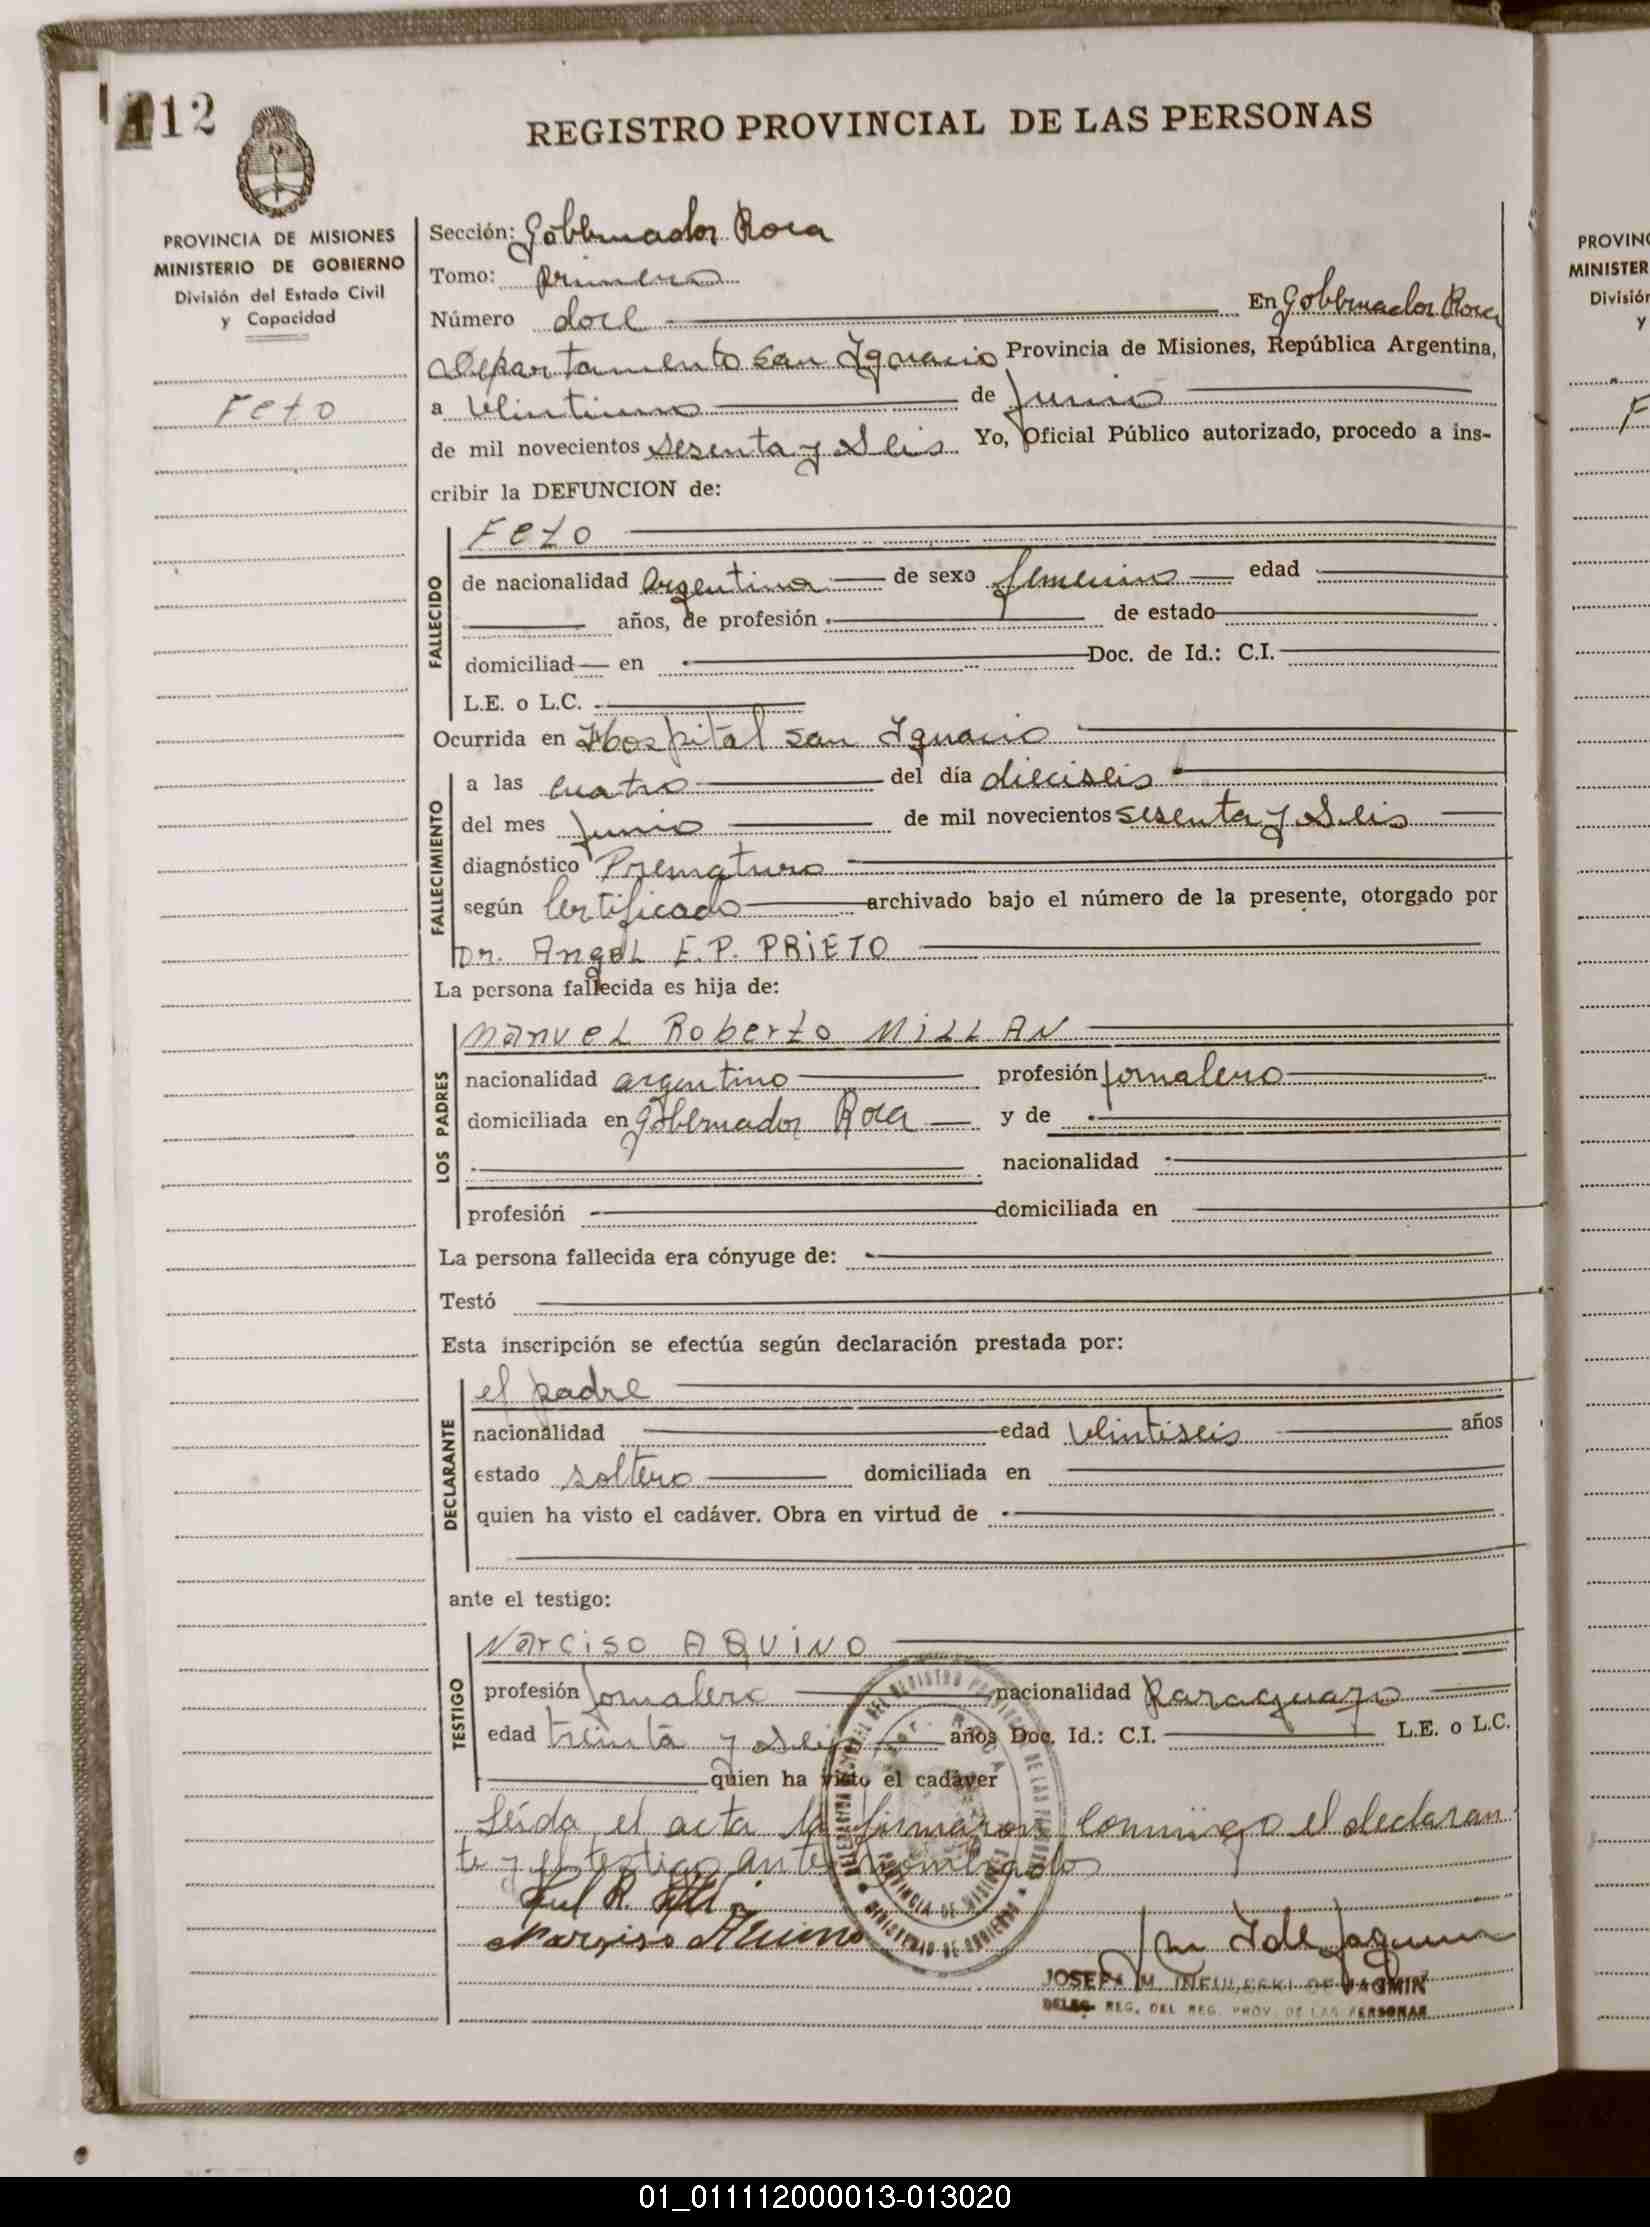 112
REGISTRO PROVINCIAL DE LAS PERSONAS
PROVINCIA DE MISIONES
MINISTERIO DE GOBIERNO
División del Estado Civil
y Capacidad
Feto
Sección: Gobernador Roca
Tomo: primero
Número doce En Gobernador Roca
Departamento San Ignacio Provincia de Misiones, República Argentina,
a veintiuno de Junio
de mil novecientos sesenta y seis Yo, Oficial Público autorizado, procedo a ins-
cribir la DEFUNCION de:
FALLECIDO
Feto
de nacionalidad argentina de sexo femenino edad
años, de profesión de estado
domiciliad en Doc. de Id.: C.I.
L.E. o L.C.
Ocurrida en Hospital San Ignacio
FALLECIMIENTO
a las cuatro del día dieciseis
del mes Junio de mil novecientos sesenta y seis
diagnóstico Prematuro
según Certificado archivado bajo el número de la presente, otorgado por
Dr. Angel E.P. PRIETO
La persona fallecida es hija de:
LOS PADRES
Manuel Roberto MILLAN
nacionalidad argentino profesión jornalero
domiciliada en Gobernador Roca y de
nacionalidad
profesión domiciliada en
La persona fallecida era cónyuge de:
Testó
Esta inscripción se efectúa según declaración prestada por:
DECLARANTE
el padre
nacionalidad edad veintiseis años
estado soltero domiciliada en
quien ha visto el cadáver. Obra en virtud de
ante el testigo:
TESTIGO
Narciso AQUINO
profesión jornalero nacionalidad paraguayo
edad treinta y seis años Doc. Id.: C.I. L.E. o L.C.
quien ha visto el cadáver
Leída el acta la firmaron conmigo el declaran
te y el testigo antes nombrados
Narziso Aquino
JOSEFA M. DE JAGMIN
DELEG. REG. DEL REG. PROV. DE LAS PERSONAS
PROVINCIA DE MISIONES
MINISTERIO DE GOBIERNO
PROVINC
MINISTER
División
y
F
01_011112000013-013020